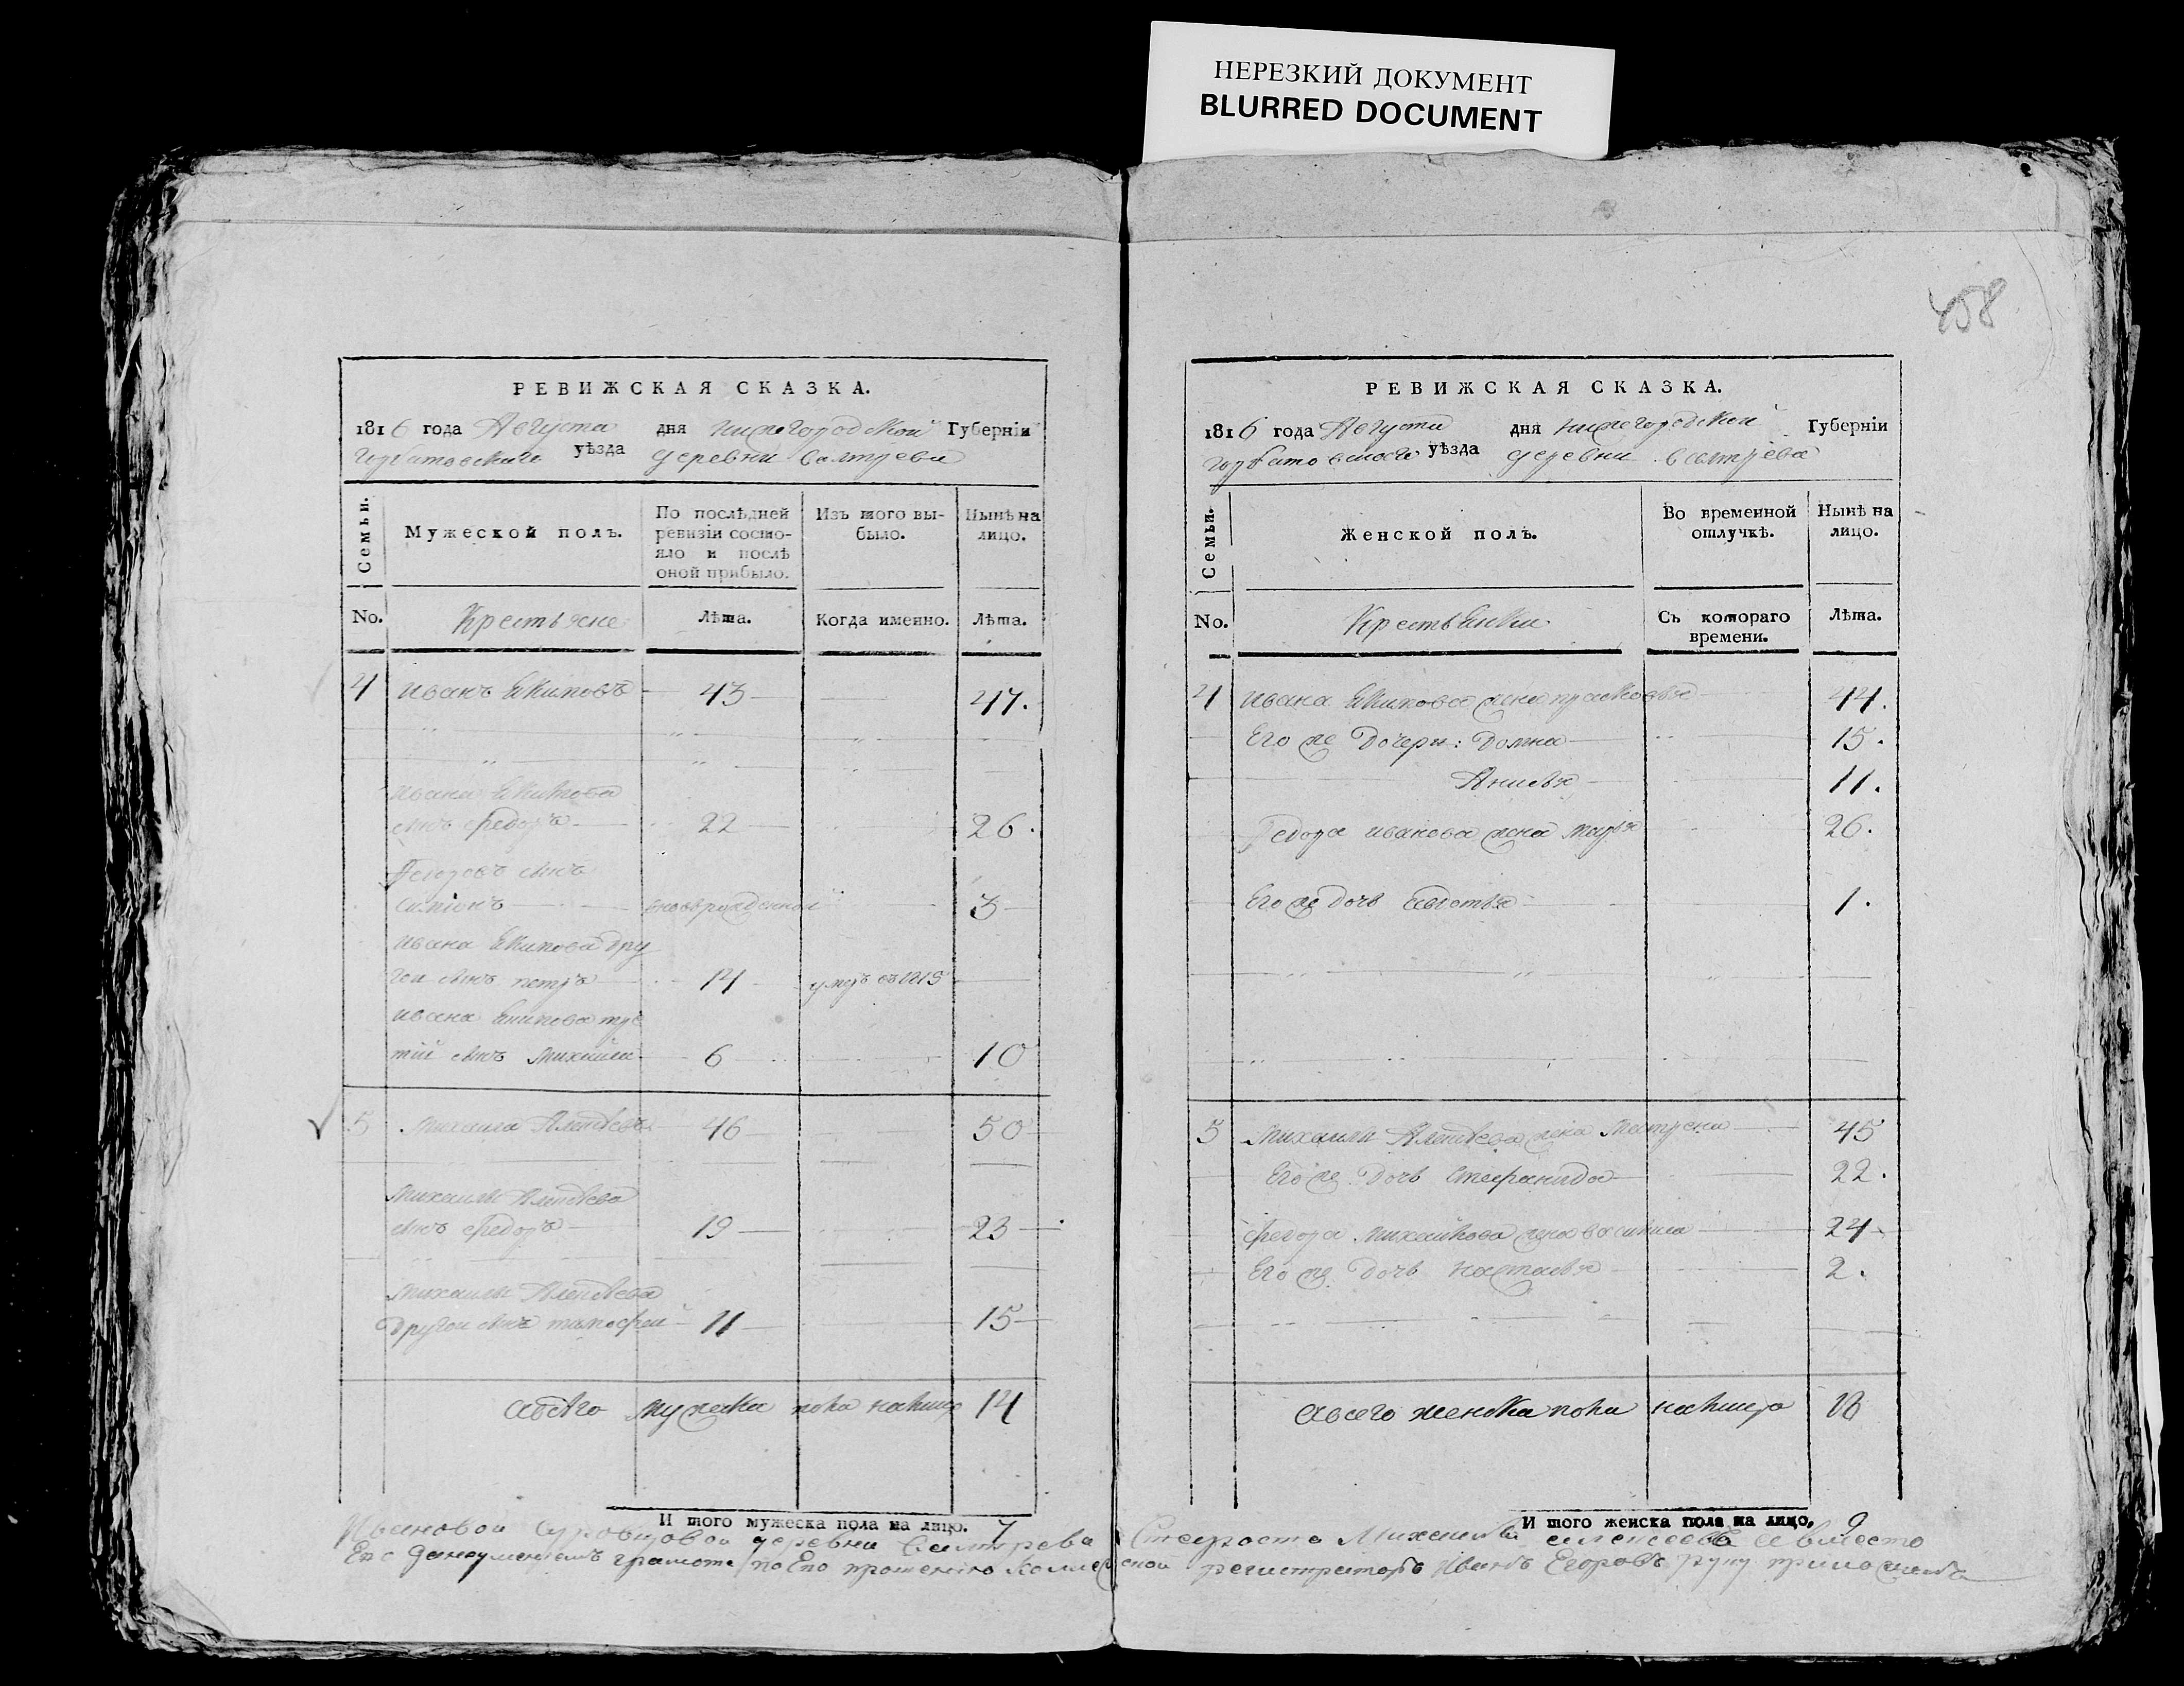 НЕРЕЗКИЙ ДОКУМЕНТ
BLURRED DOCUMENT
458
РЕВИЖСКАЯ СКАЗКА.
1816 года Августа дня нижегородской Губерніи
горбатовскаго уѣзда деревни
Семьи.
Мужеской полъ.
По послѣдней ревизіи состояло и послѣ оной прибыло.
Изъ того выбыло.
Нынѣ на лицо.
No. Крестьяне Лѣта. Когда именно. Лѣта.
4 Иванъ Екимовъ 43 47.
Ивана Екимова
сынъ Федоръ 22 26.
Федоровъ сынъ
Симіонъ новорожденной 3
Ивана Екимова дру
гой сынъ петръ 14 умръ въ 1815
Ивана Екимова тре
тій сынъ Михаила 6 10
5 Михаила 46 50
Михаилы
сынъ Федоръ 19 23
Михаилы
другой сынъ тимофей 11 15
мужска пола налицо 14
И того мужеска пола на лицо. 7
РЕВИЖСКАЯ СКАЗКА.
1816 года Августа дня нижегородской Губерніи
горбатовскаго уѣзда деревни
Семьи.
Женской полъ.
Во временной отлучкѣ.
Нынѣ на лицо.
No. Крестьянки Съ котораго времени. Лѣта.
4 Ивана Екимова жена прасковья 44.
Его же Дочери: Домна 15.
Анисья 11.
Федора иванова жена марья 26.
Его же дочь 1.
5 Михаилы жена Матрена 45
Его же Дочь Стефанида 22.
Федора Михайлова жена василиса 24
Его же Дочь настасья 2.
женска пола налицо 18
И того женска пола на лицо, 9
деревни Староста вместо
грамоте по Его прошению регистраторъ Иванъ Егоровъ руку приложилъ